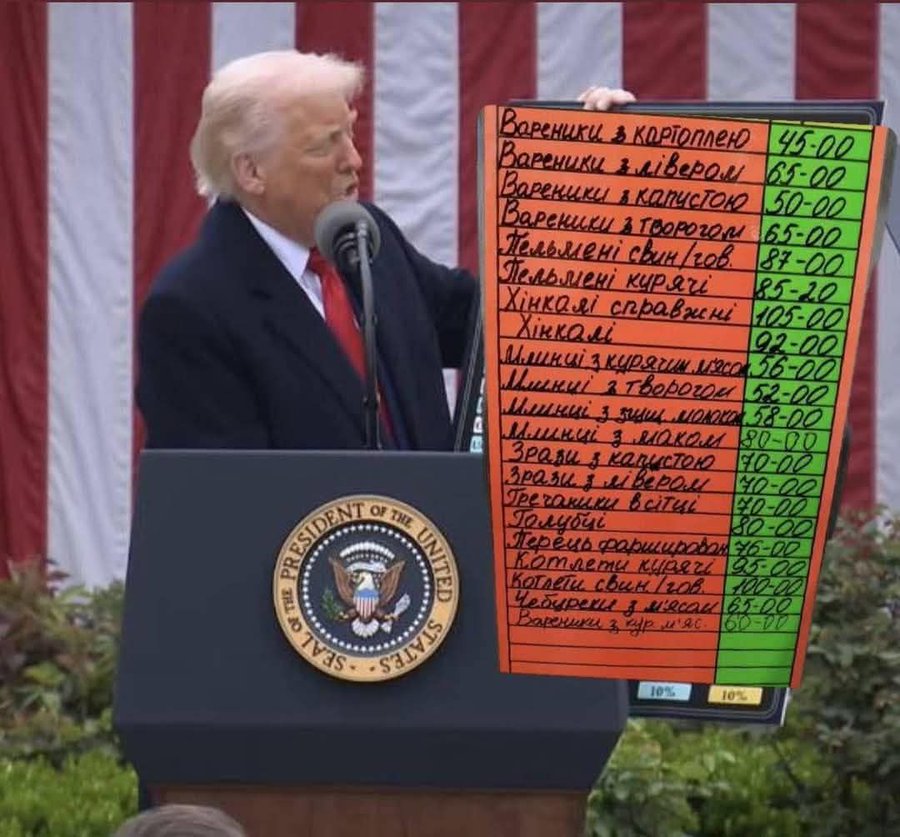 Вареники з картоплею 45-00
Вареники з лівером 65-00
Вареники з капустою 50-00
Вареники з творогом 65-00
Пельмені свин/гов. 87-00
Пельмені курячі 85-20
Хінкалі справжні 105-00
Хінкалі 92-00
Млинці з курячим м'ясом 56-00
Млинці з творогом 52-00
Млинці з згущ. молоком 58-00
Млинці з маком 80-00
Зрази з капустою 70-00
Зрази з лівером 70-00
Гречаники в сітці 70-00
Голубці 80-00
Перець фарширован 76-00
Котлети курячі 95-00
Котлети свин/гов. 100-00
Чебуреки з м'ясом 65-00
Вареники з кур. м'яс. 60-00
10% 10%
SEAL OF THE PRESIDENT OF THE UNITED STATES